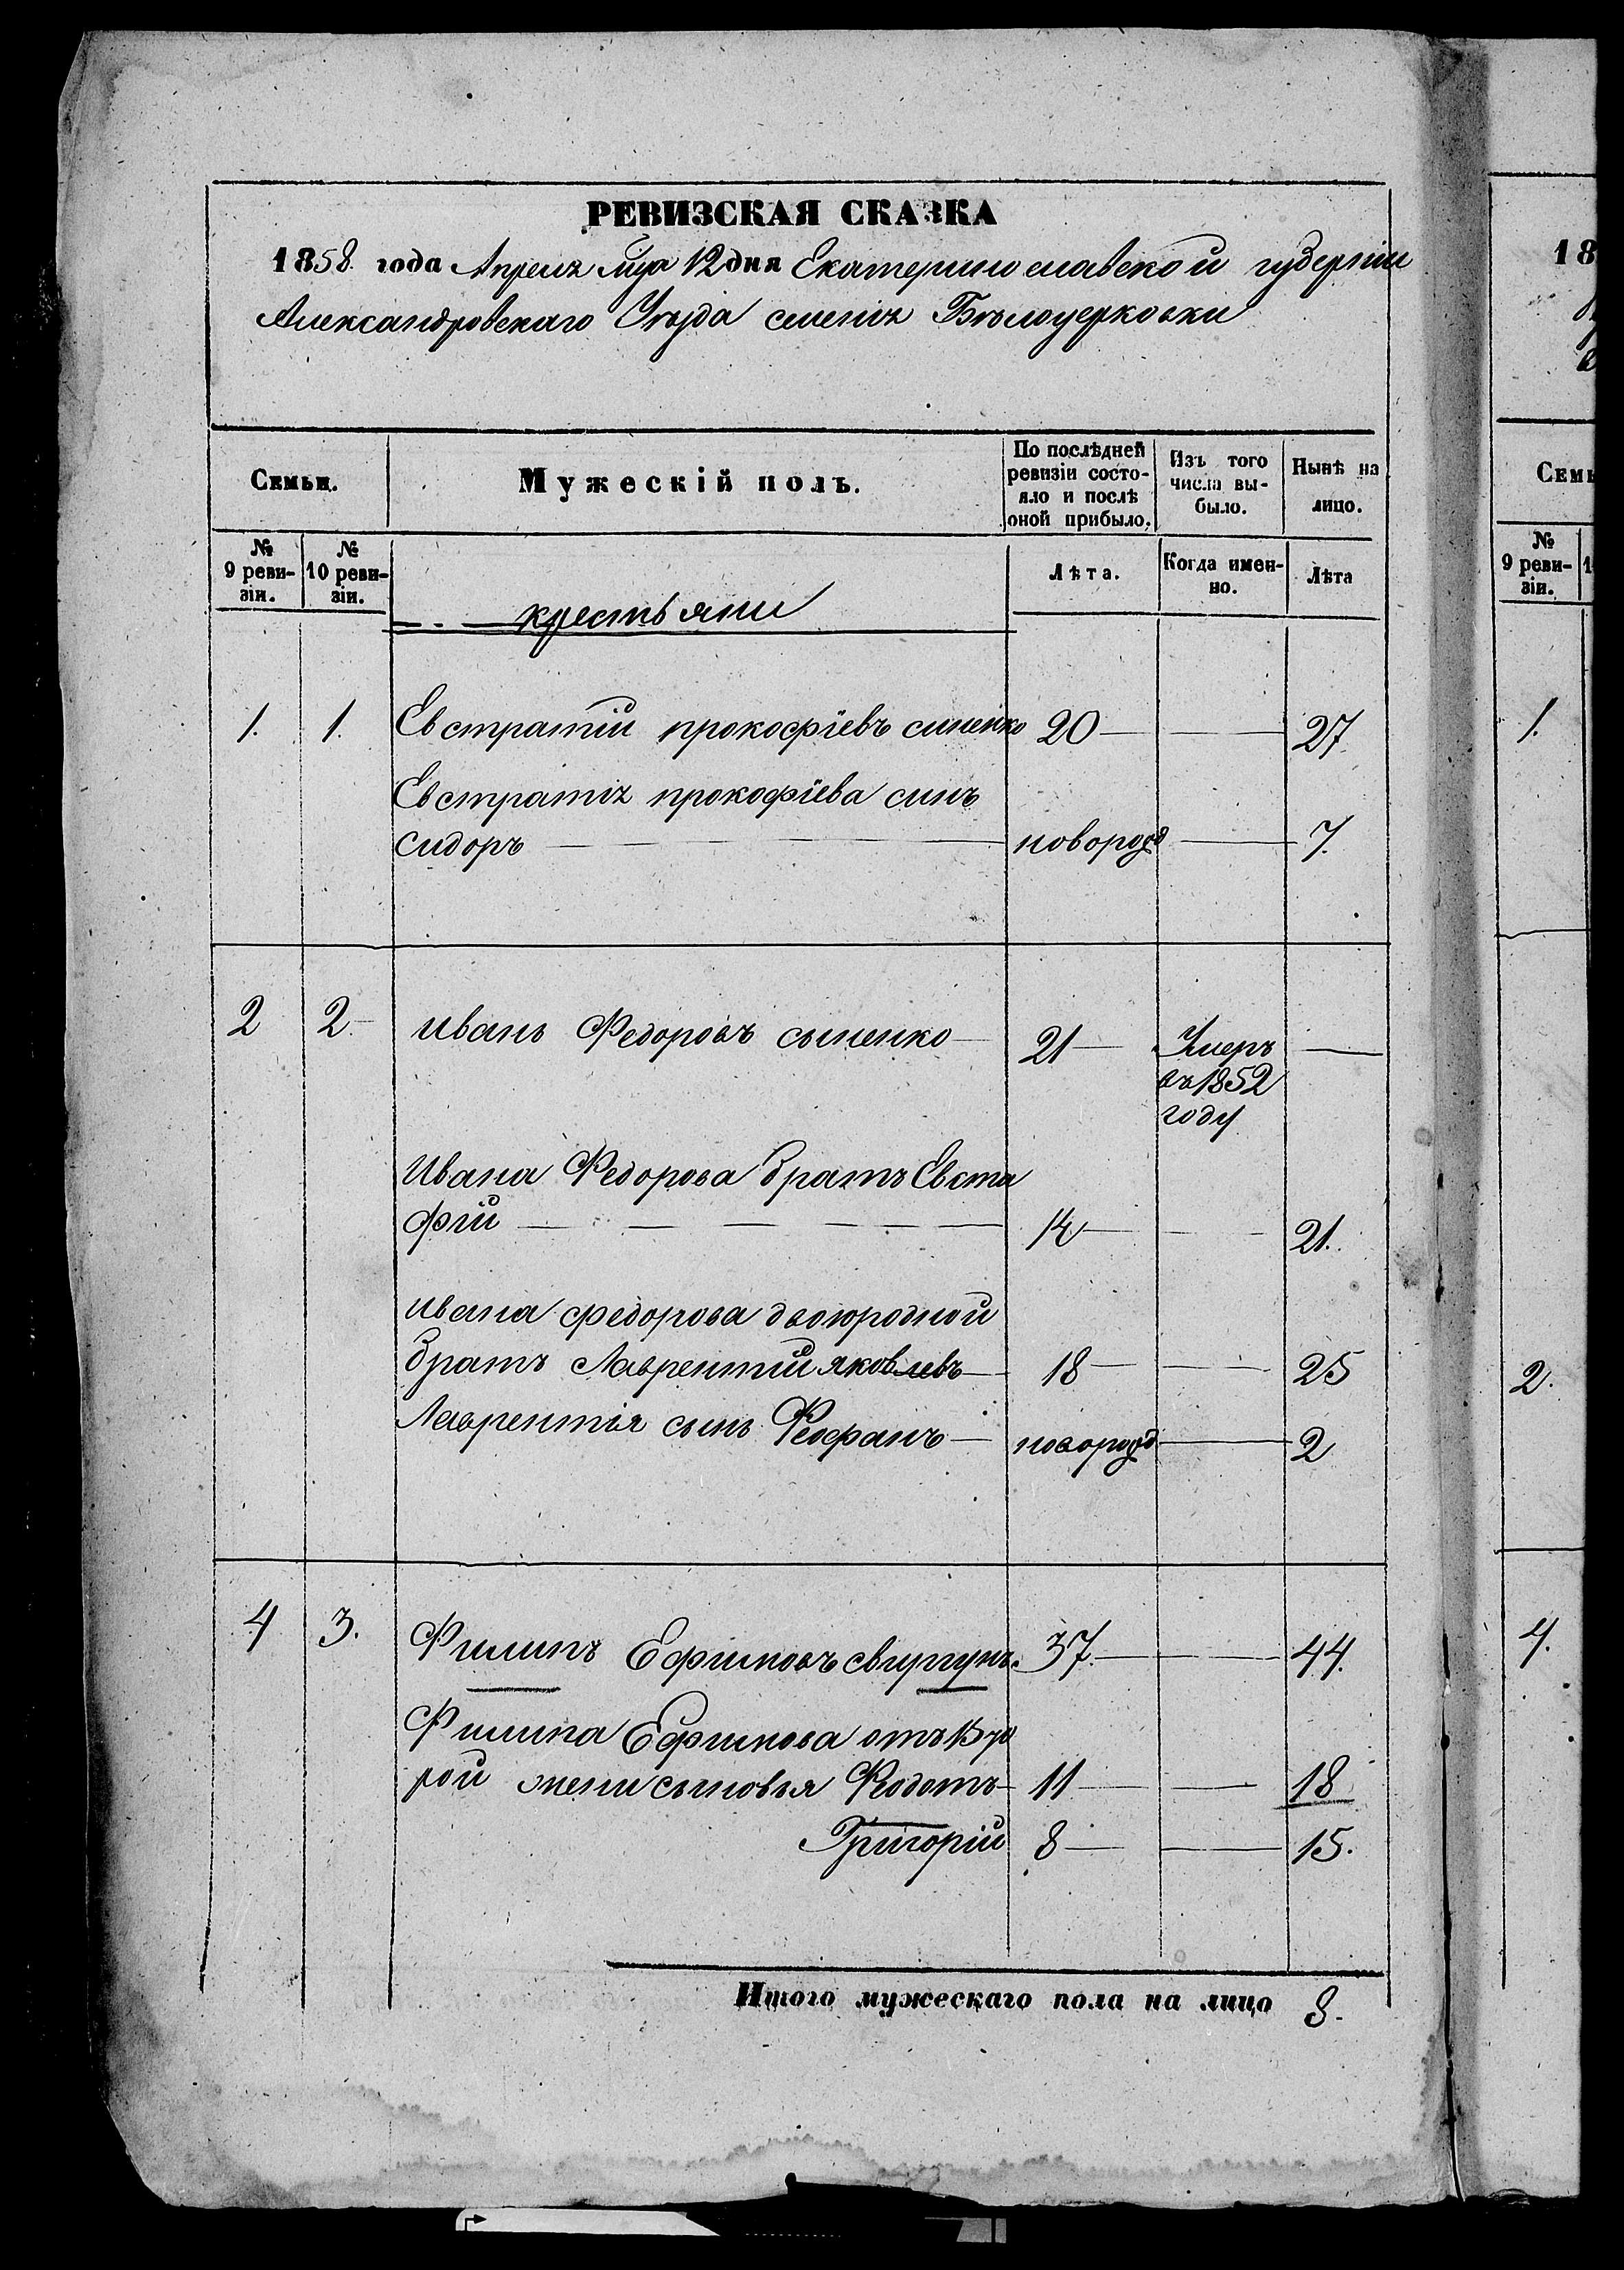 РЕВИЗСКАЯ СКАЗКА
1858. года Апреля мца 12 дня Екатеринославской губернии
Александровскаго Уѣзда селенія Бѣлоцерковки
Семьи.
Мужескій полъ.
По послѣдней
ревизіи состо-
яло и послѣ
оной прибыло.
Изъ того
числа вы-
было.
Нынѣ на
лицо.
№
9 реви-
зіи.
№
10 реви-
зіи.
Лѣта.
Когда имен-
но.
Лѣта
крестьяни
1. 1. Евстратій прокофіевъ синенко 20 27
Евстратія прокофіева синъ
сидоръ новорожд 7.
2 2 иванъ Федоровъ сыненко 21 Умеръ
въ 1852
году
Ивана Федорова братъ Евста
фій 14 21.
ивана федорова двоюродной
братъ Лаврентій яковлевъ 18 25
Лаврентія сынъ Феофанъ новорожд 2
4 3. Филипъ Ефимовъ свиргунъ. 37. 44.
Филипа Ефимова отъ Вто
рой жени сыновья Федотъ 11 18
Григорій 8 15.
Итого мужескаго пола на лицо 8.
18
Семь
№
9 реви-
зіи.
1.
2.
4.